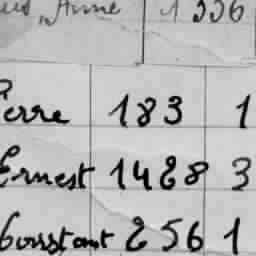 Anne 1336
Pierre 183 1
Ernest 1428 3
Constant 256 1